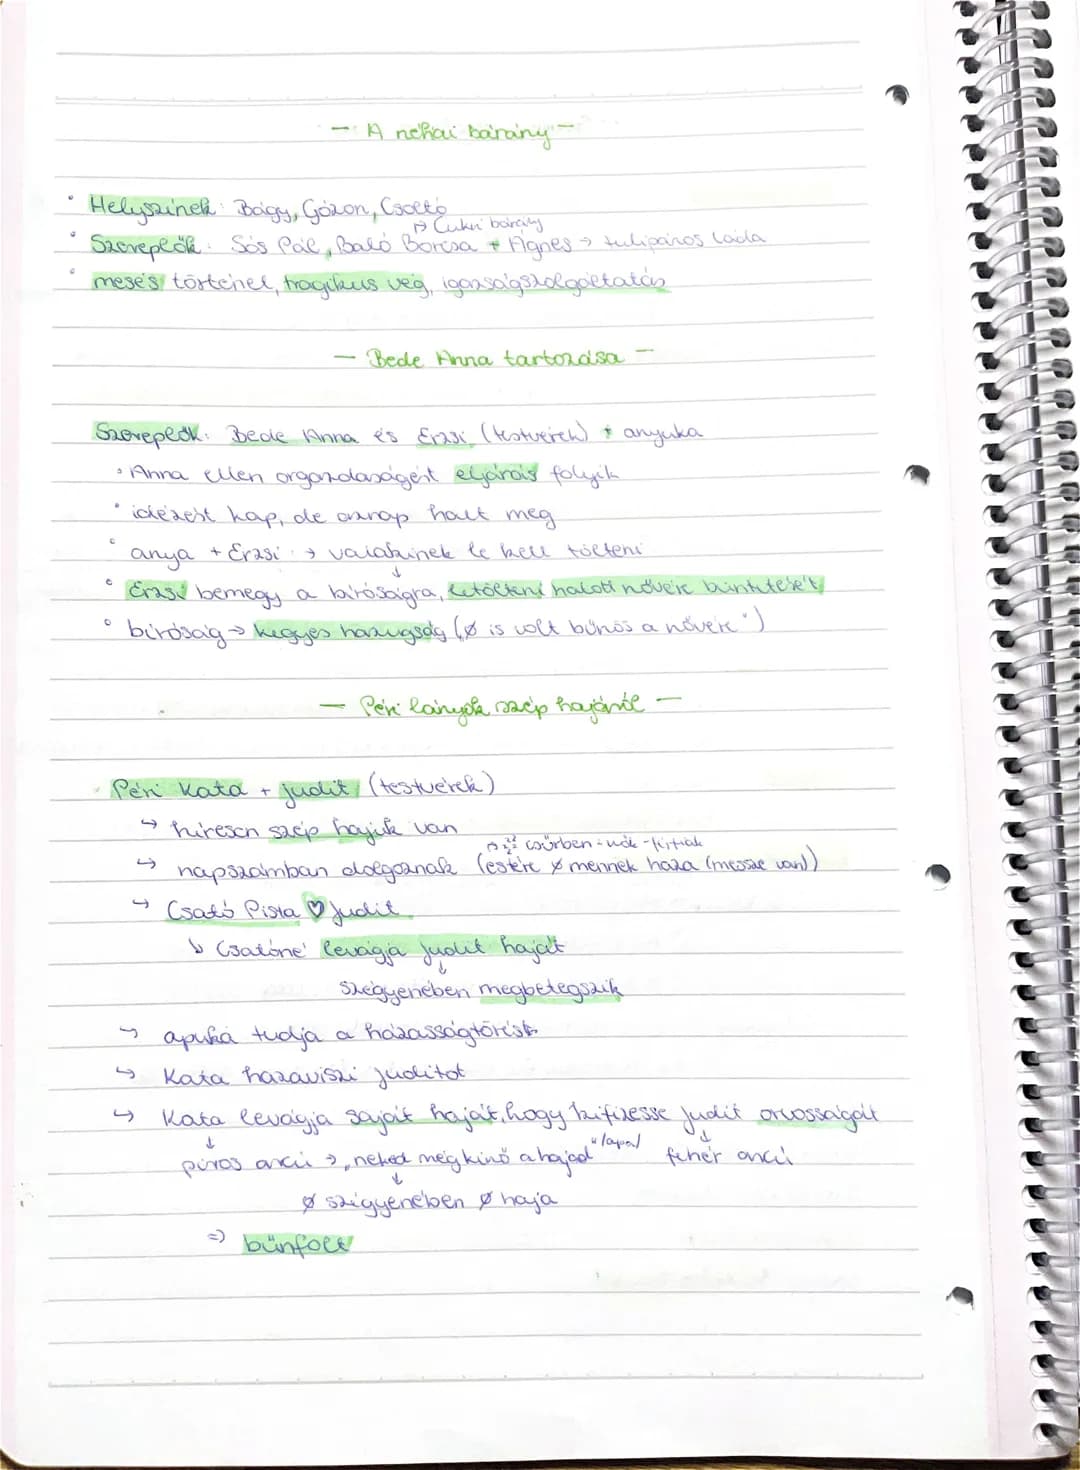 - A néhai bárány -
• Helyszínek: Bágy, Gózon, Csoltó
→ Cukri bárány
• Szereplők: Sós Pál, Baló Borcsa + Ágnes → tulipános láda
• mesés történet, tragikus vég, igazságszolgáltatás
- Bede Anna tartozása -
Szereplők: Bede Anna és Erzsi (testvérek) + anyuka
• Anna ellen orgazdaságért eljárás folyik
• idézést kap, de aznap halt meg
• anya + Erzsi → valakinek le kell tölteni
↓
• Erzsi bemegy a bíróságra, letölteni halott nővére büntetését
• bíróság → kegyes hazugság („Ø is volt bűnös a nővére")
- Péri lányok szép hajáról -
Péri Kata + Judit (testvérek)
↳ híresen szép hajuk van
csűrben: nők - férfiak
↳ napszámban dolgoznak (estére Ø mennek haza (messze van))
↳ Csató Pista ♡ Judit
↳ Csatóné levágja Judit haját
↓
szégyenében megbetegszik
↳ apuka tudja a házasságtörést
↳ Kata hazaviszi Juditot
↳ Kata levágja saját haját, hogy kifizesse Judit orvosságát
↓ ↓
piros arcú → „neked megkínő a hajad" /apa/ fehér arcú
↓
Ø szégyenében Ø haja
⇒ bűnfolt